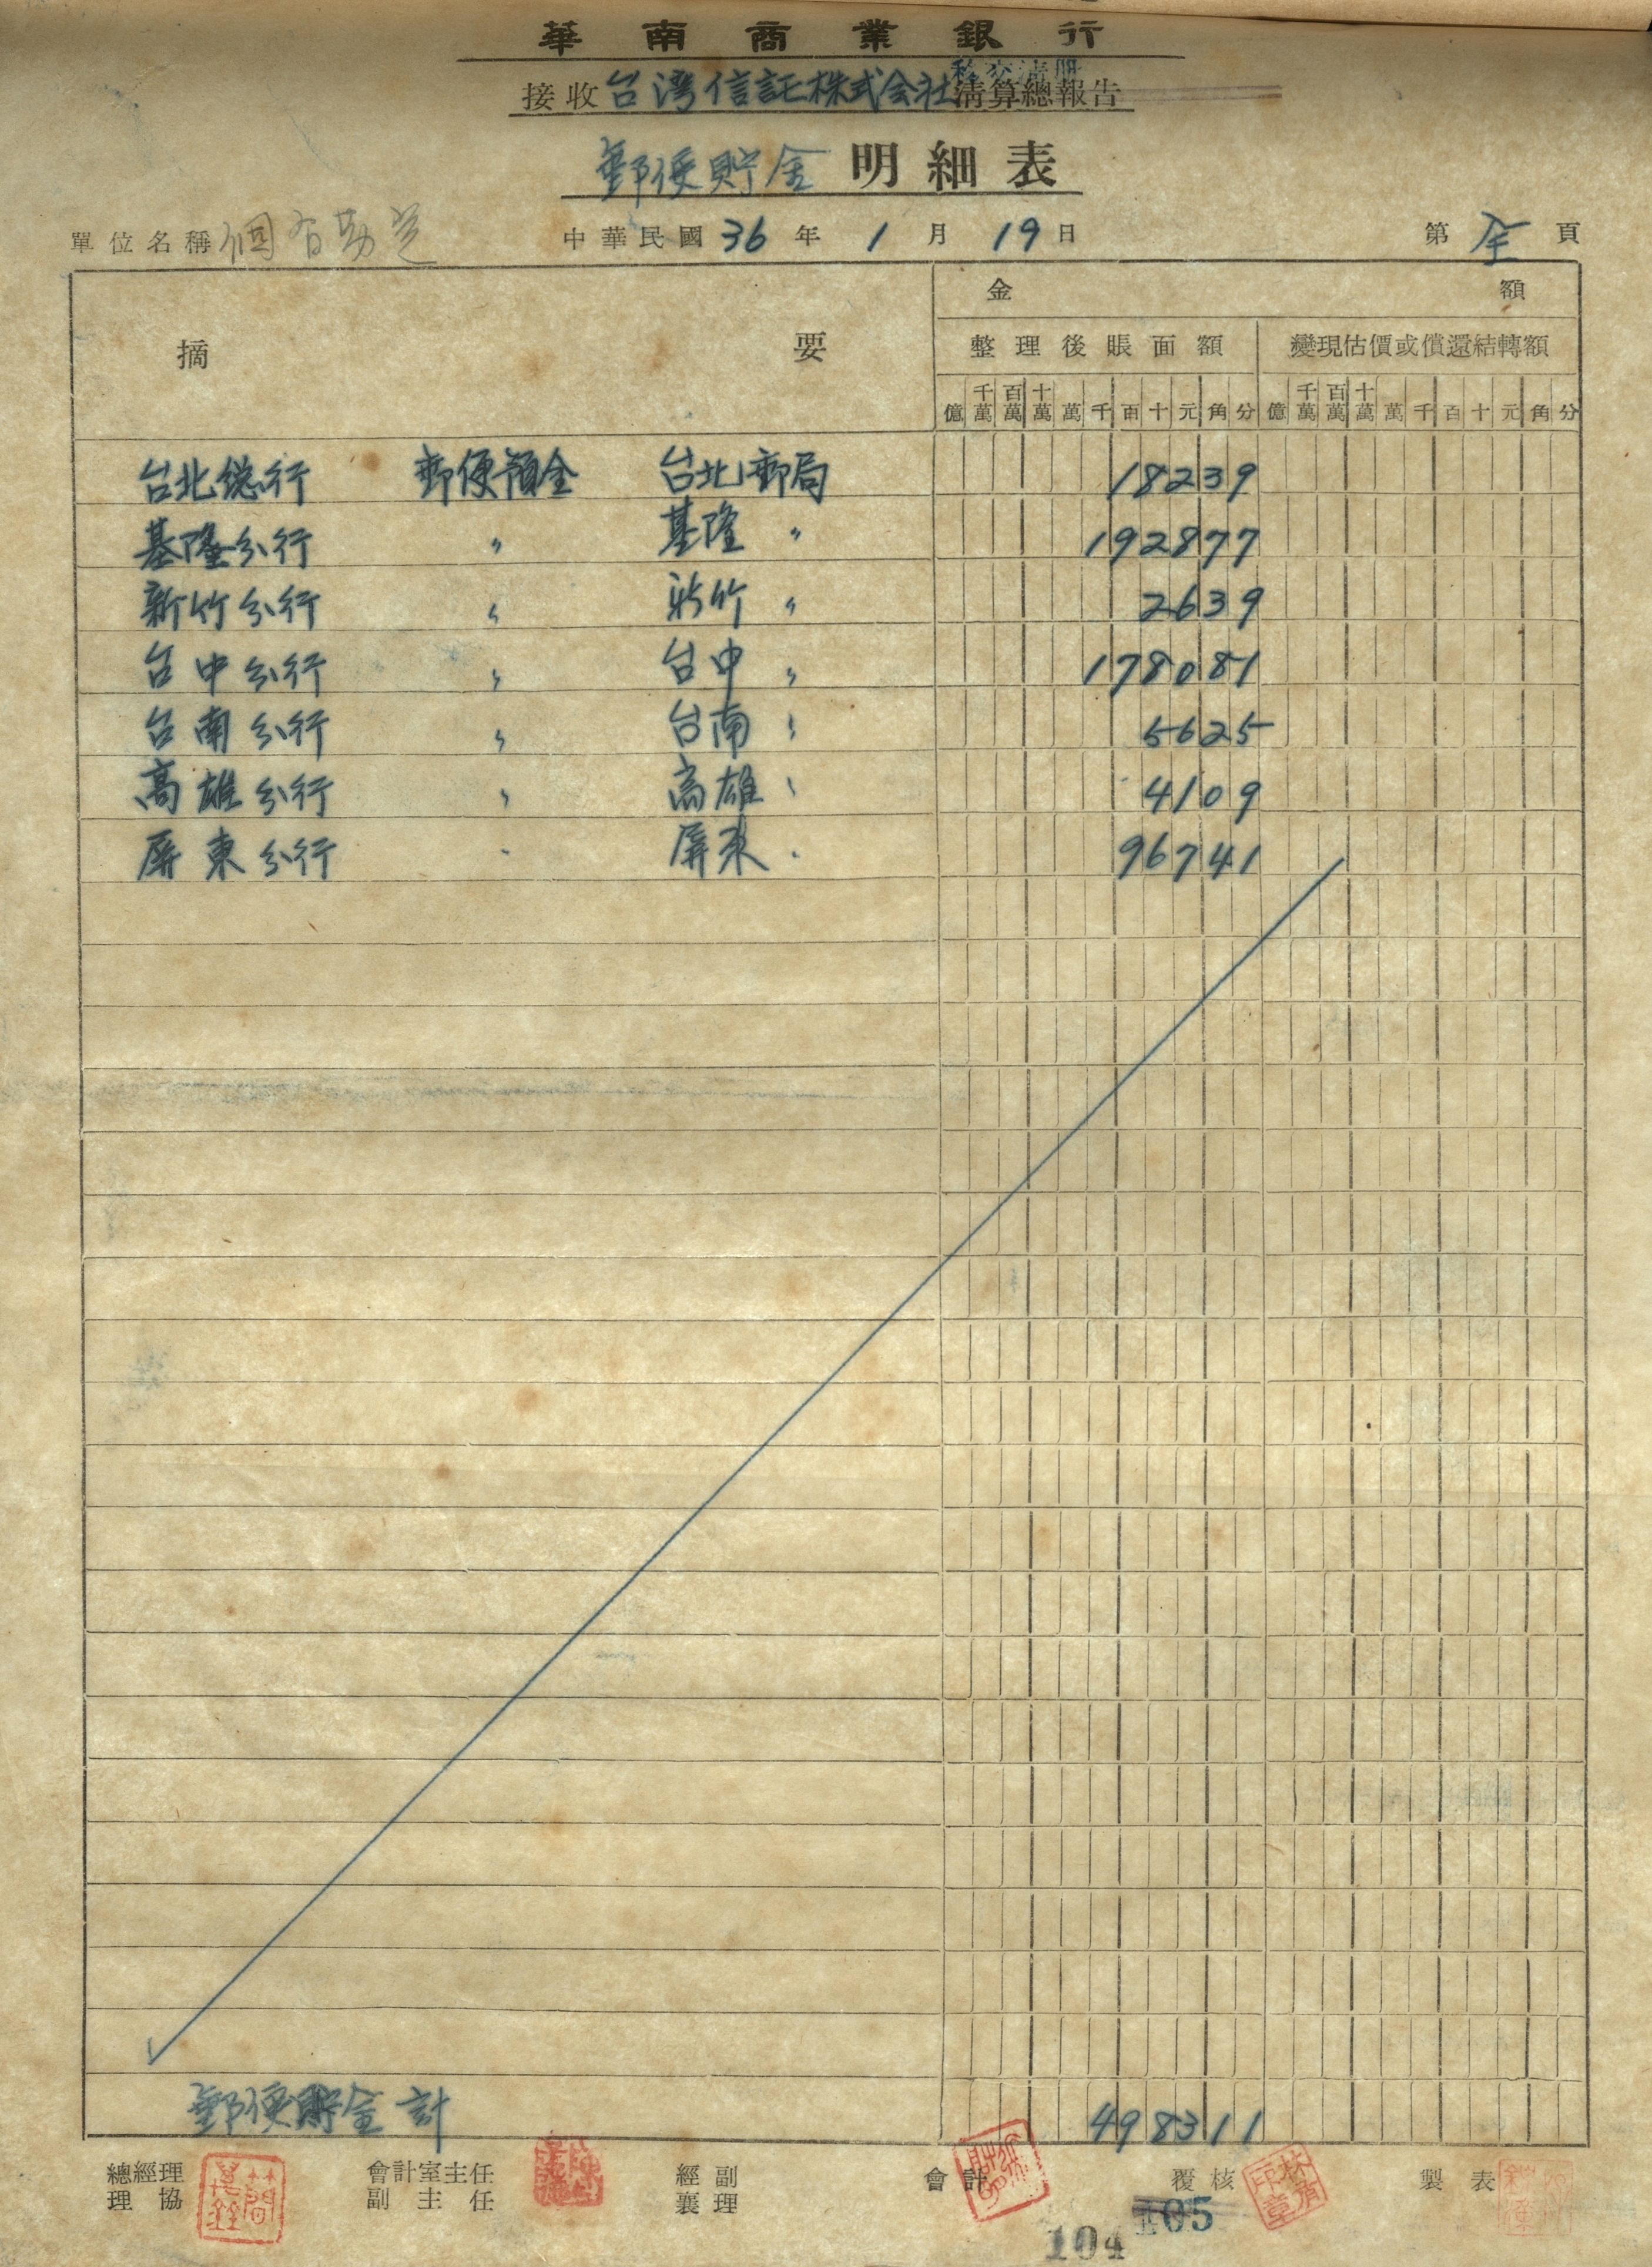 華南商業銀行
移交清冊
接收台灣信託株式会社清算總報告
郵便貯金明細表
單位名稱 中華民國36年1月19日 第全頁
摘要 金額
整理後賬面額 變現估價或償還結轉額
億 千萬 百萬 十萬 萬 千 百 十 元 角 分 億 千萬 百萬 十萬 萬 千 百 十 元 角 分
台北総行 郵便預金 台北郵局 18239
基隆分行 〃 基隆 〃 192877
新竹分行 〃 新竹 〃 2639
台中分行 〃 台中 〃 178081
台南分行 〃 台南 〃 5625
高雄分行 〃 高雄 〃 4109
屏東分行 〃 屏東 〃 96741
郵便貯金計 498311
總經理 會計室主任 經副 會計 覆核 製表
理協 副主任 襄理
105
104